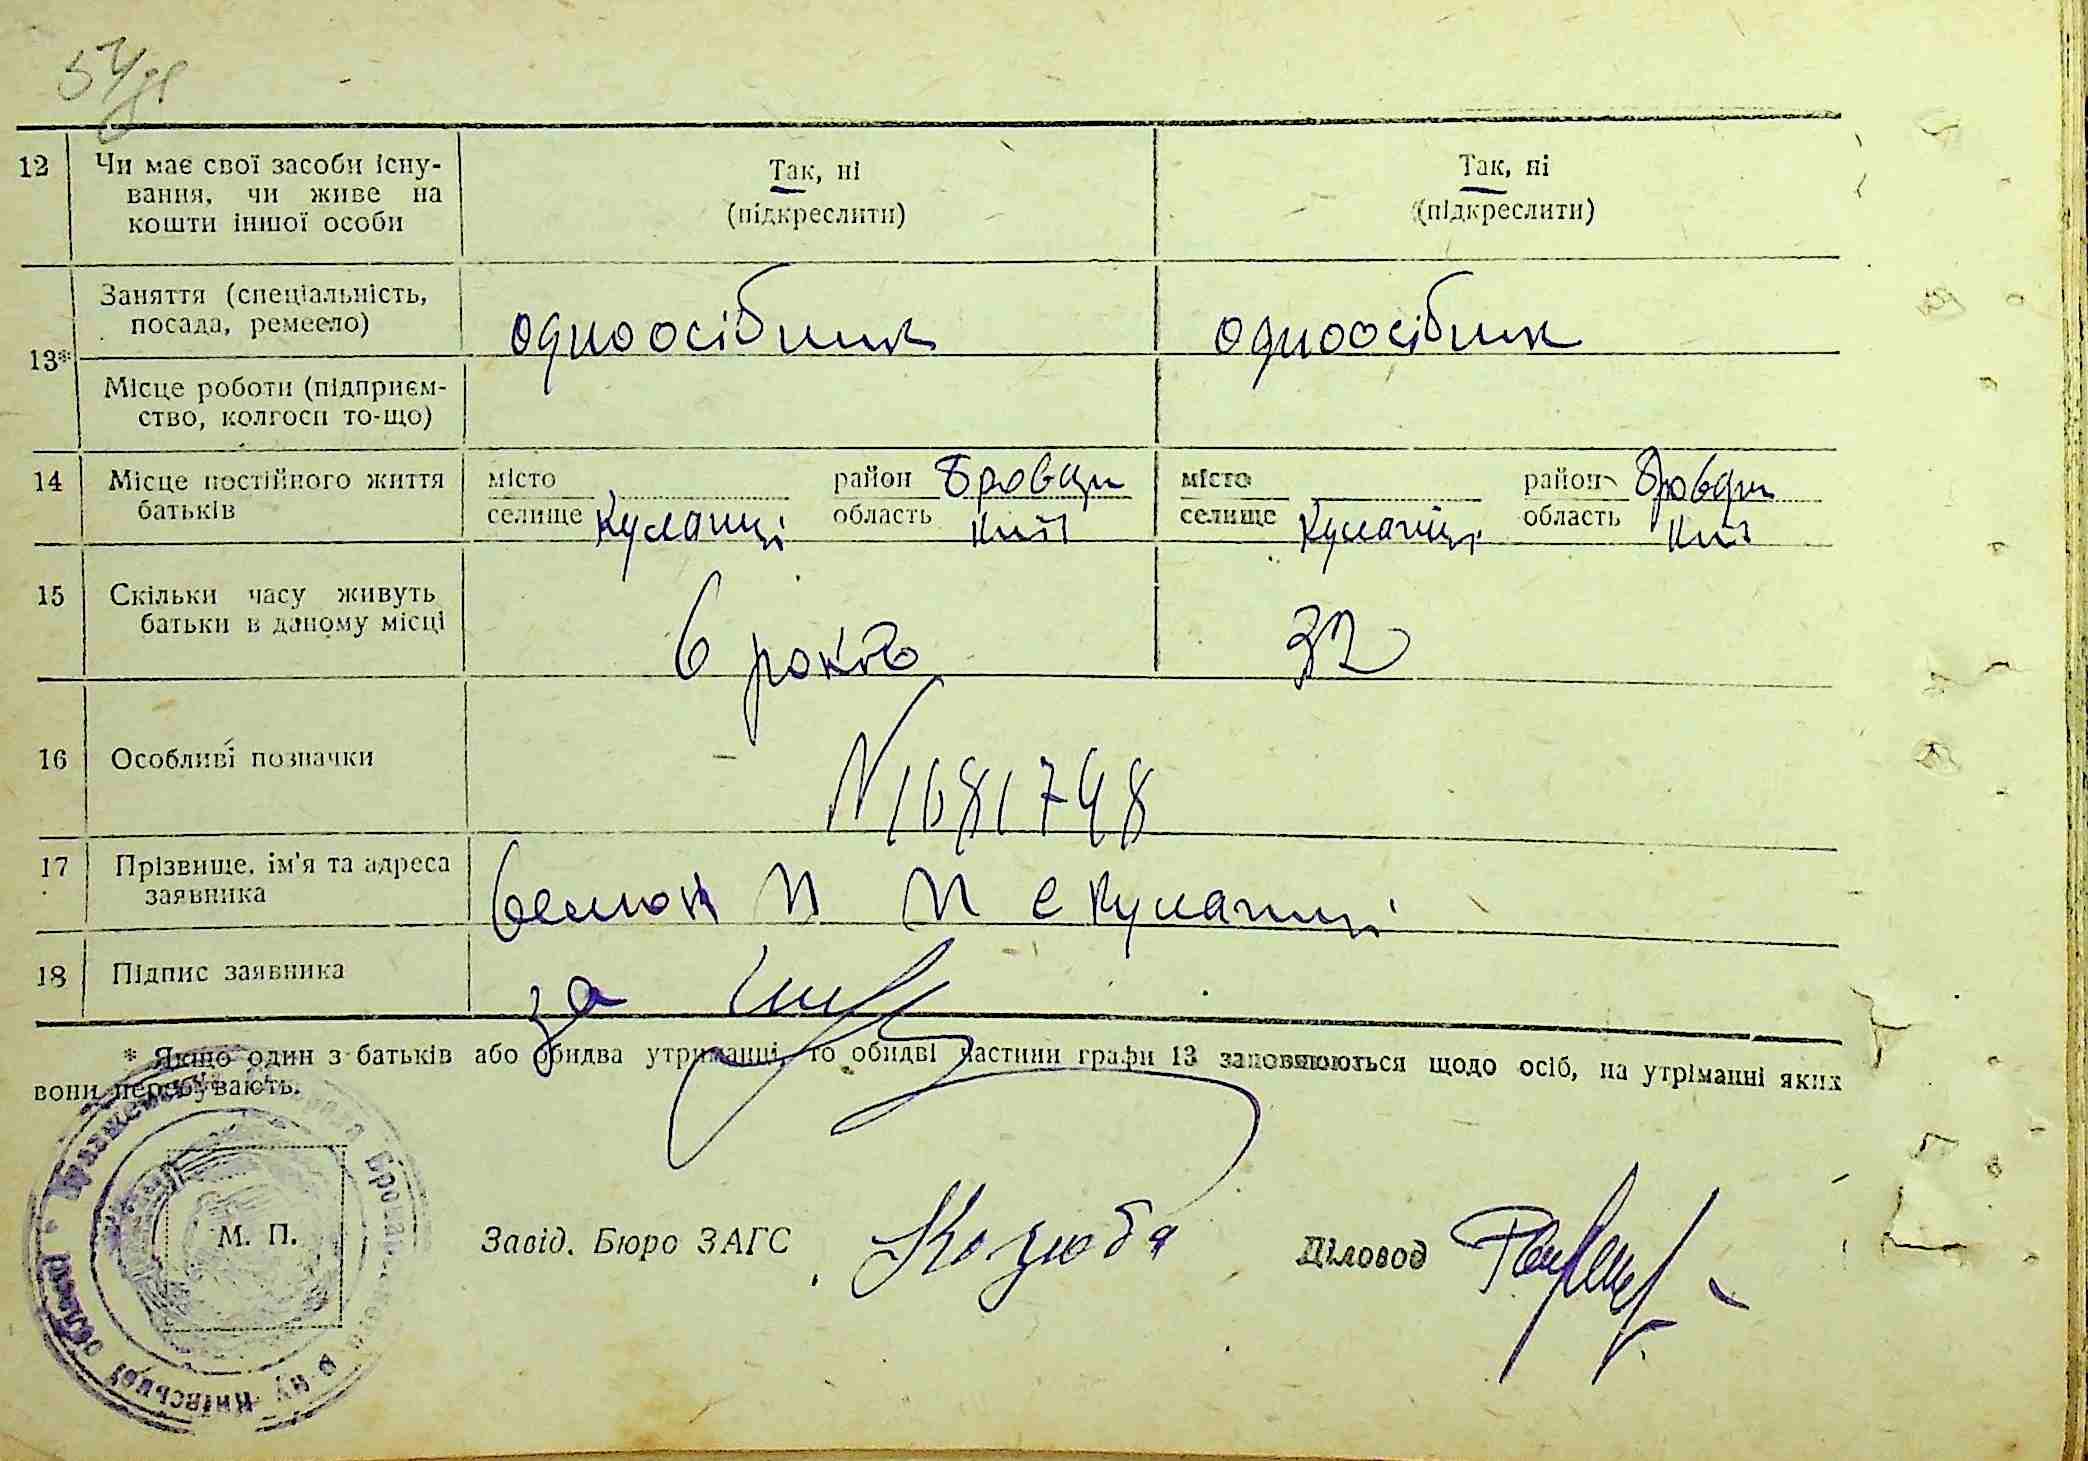 12 Чи має свої засоби існу-
вання, чи живе на
кошти іншої особи
Так, ні
(підкреслити)
Так, ні
(підкреслити)
13*
Заняття (спеціальність,
посада, ремесло)
одноосібник
одноосібник
Місце роботи (підприєм-
ство, колгосп то-що)
14 Місце постійного життя
батьків
місто
селище Кулаги
район Бровари
область Київ
місто
селище Кулаги
район Бровари
область Київ
15 Скільки часу живуть
батьки в даному місці
6 років
32
16 Особливі позначки
N1681748
17 Прізвище, ім'я та адреса
заявника
18 Підпис заявника
за
* Якщо один з батьків або обидва утриманці, то обидві частини графи 13 заповнюються щодо осіб, на утриманні яких
вони перебувають.
М. П.
Завід. Бюро ЗАГС Козюба
Діловод